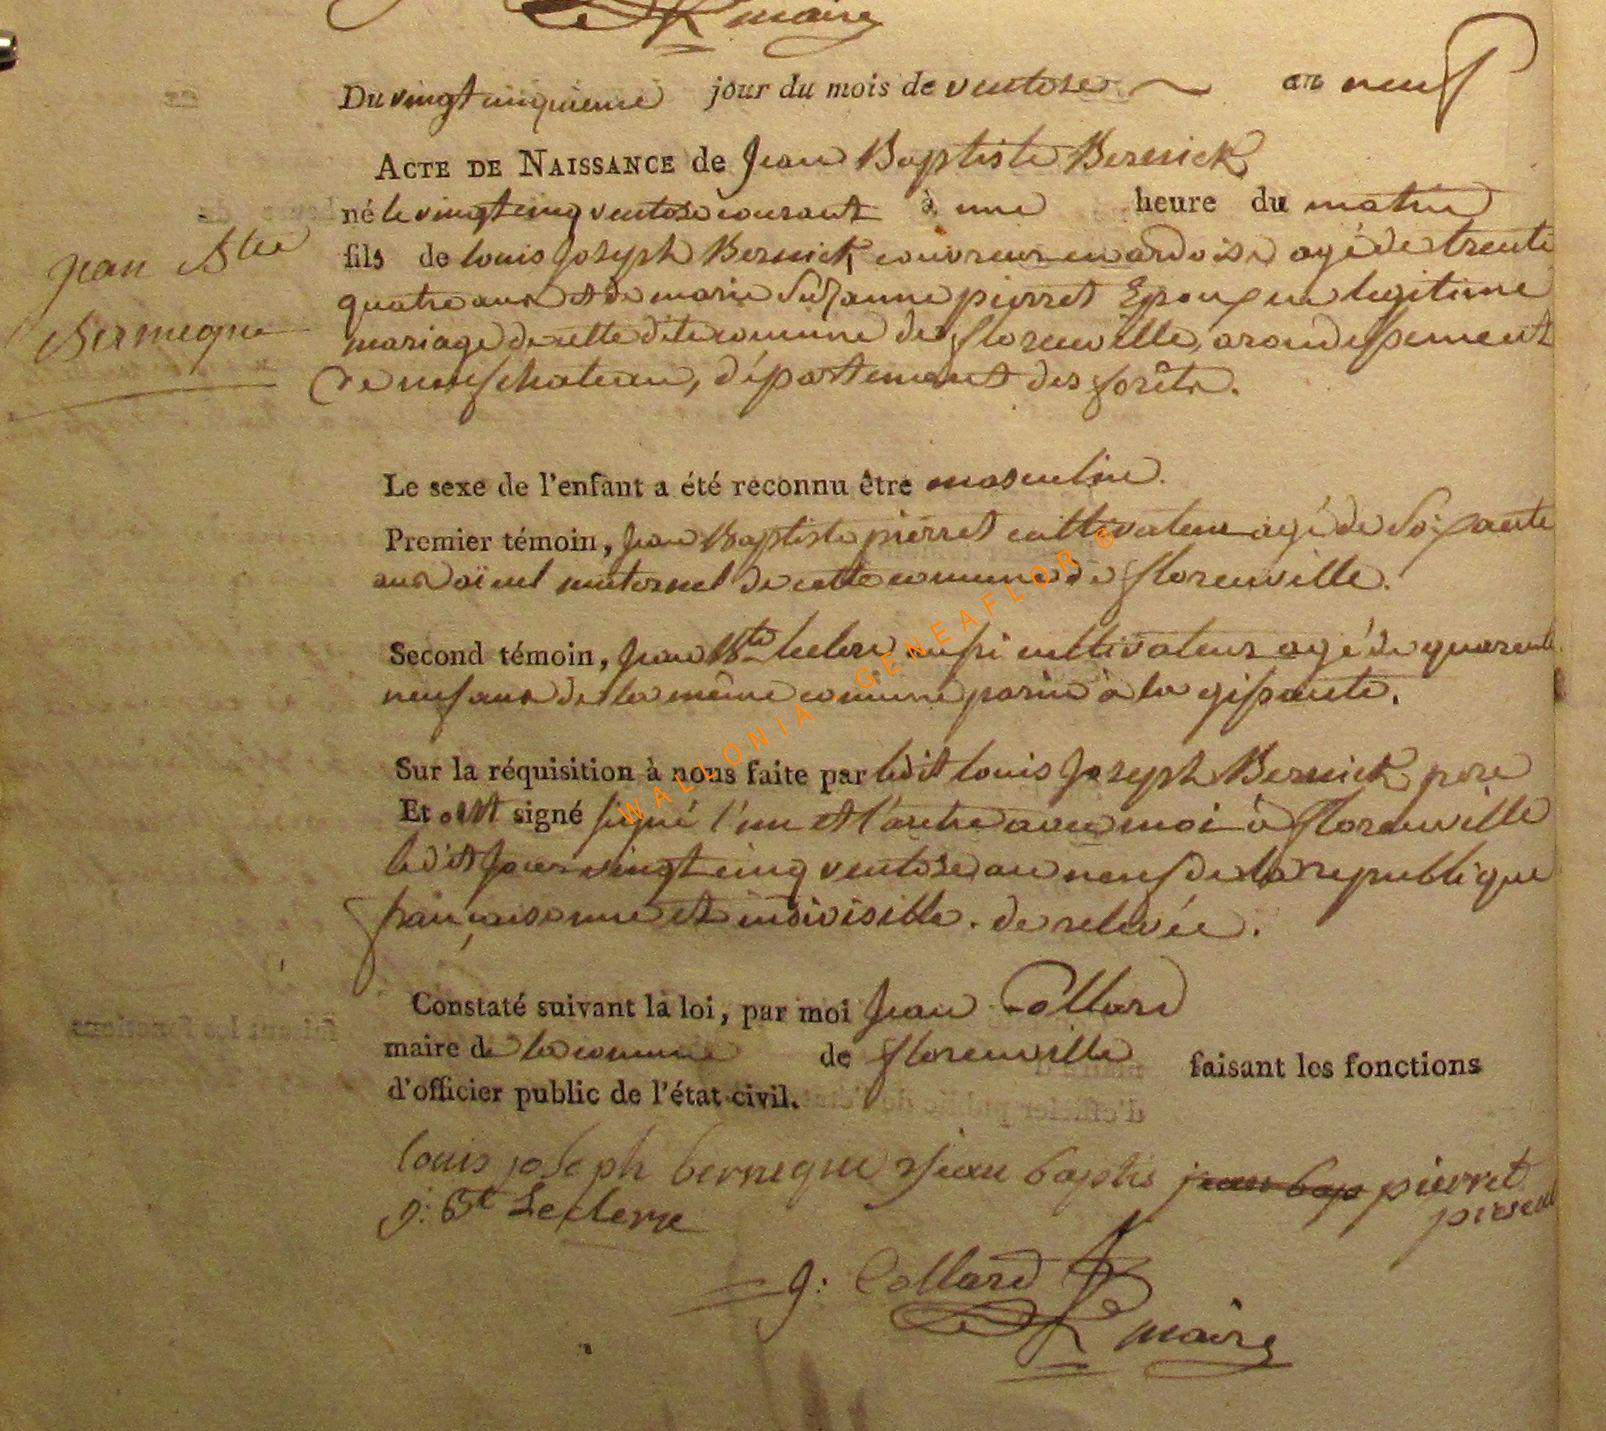 maire
Du vingt cinquieme jour du mois de ventose an neuf
ACTE DE NAISSANCE de Jean Baptiste Bernick
né le vingt cinq ventose courant à une heure du matin
Jean Btte
fils de louis Joseph Bernick couvreur en ardoise agé de trente
quatre ans et de marie Suzanne pierret Epoux en legitime
Bernneque
mariage de cette dite comune de florenville, arondissement
de neufchateau, département des forêts.
Le sexe de l'enfant a été reconnu être masculin.
Premier témoin, Jean Baptiste pierret cultivateur agé de Soixante
ans aïeul maternel de cette comune de florenville.
Second témoin, Jean Bte leclere aussi cultivateur agé de quarante
neuf ans de la même comune parin à la gissante.
Sur la réquisition à nous faite par ledit louis Joseph Bernick pere
Et ont signé signé l'un et l'autre avec moi à florenville
ledit Jour vingt cinq ventose an neuf de la republique
françaisonne et indivisible. de relevée.
Constaté suivant la loi, par moi Jean Collard
maire de la comune de florenville faisant les fonctions
d'officier public de l'état civil.
louis joseph berneque jean baptis jean bap pierret
J: Bt Leclere
J: Collard
maire
WALLONIA GENEAFLOR ©